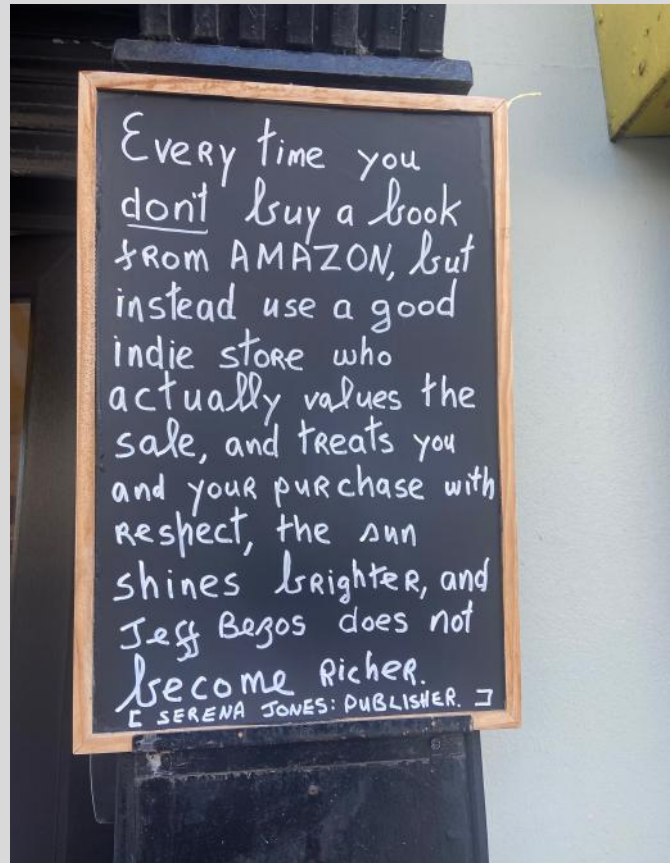 Every time you
don't buy a book
from AMAZON, but
instead use a good
indie store who
actually values the
sale, and treats you
and your purchase with
respect, the sun
shines brighter, and
Jeff Bezos does not
become richer.
[ SERENA JONES: PUBLISHER. ]